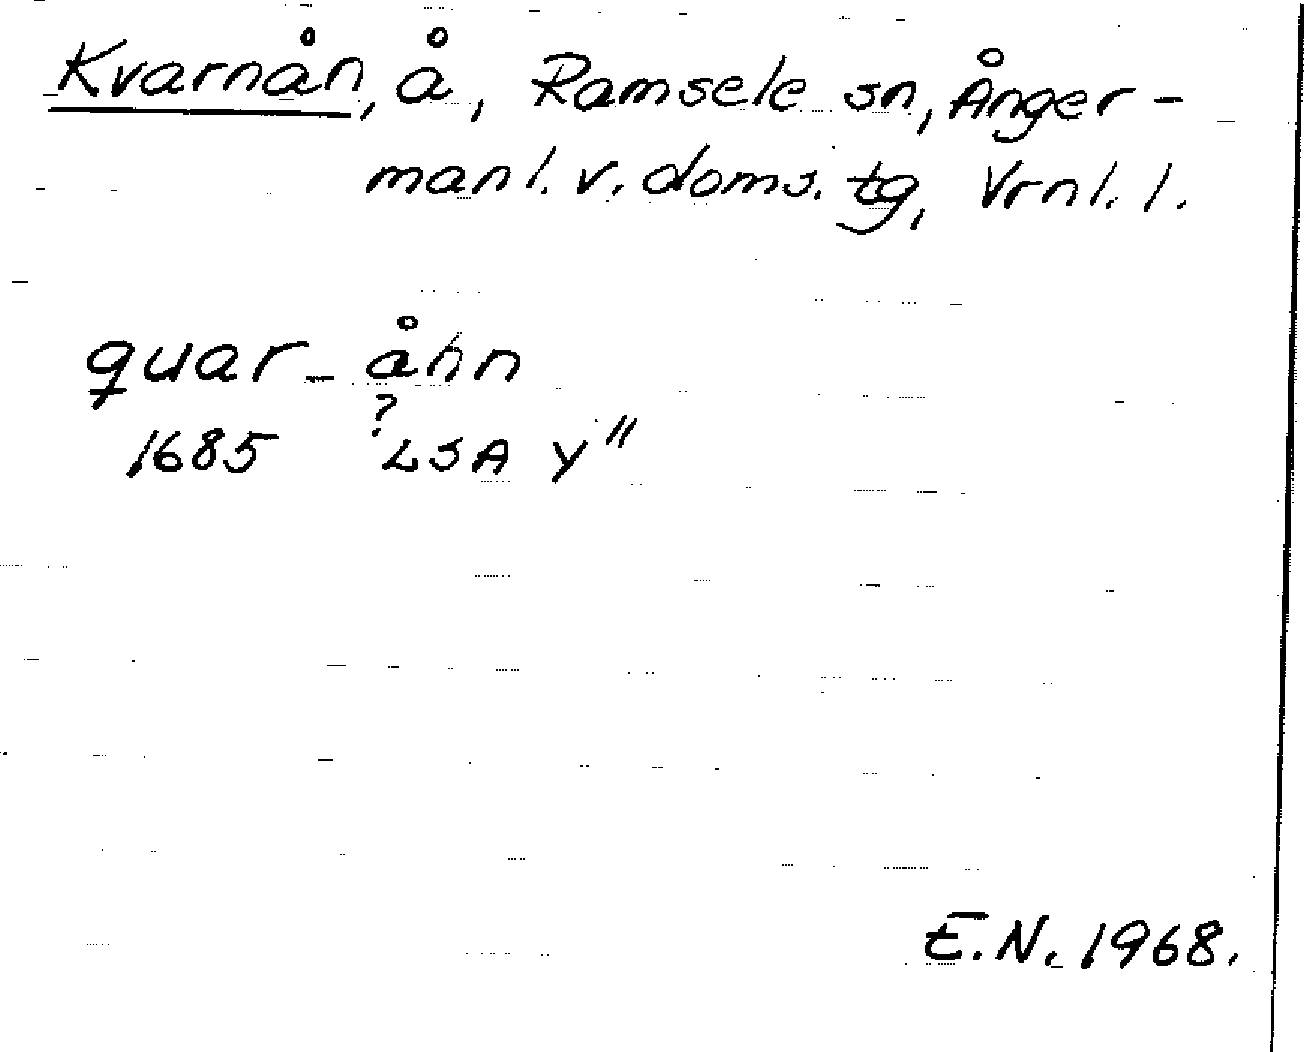 Kvarnån, å, Ramsele sn, Ånger-
manl. v. doms. tg, Vrnl. l.
quar-åhn
?
1685 LSA Y"
E.N. 1968.